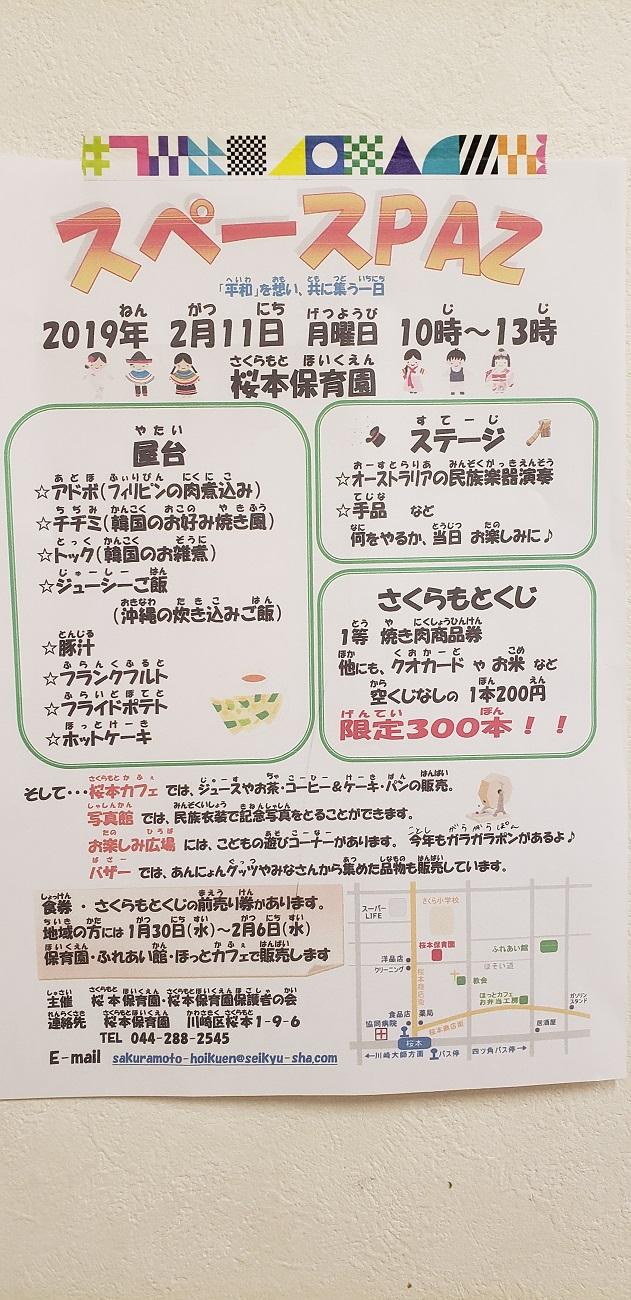 スペースPAZ
「平和」を想い、共に集う一日
2019年 2月11日 月曜日 10時～13時
桜本保育園
屋台
☆アドボ(フィリピンの肉煮込み)
☆チヂミ(韓国のお好み焼き風)
☆トック(韓国のお雑煮)
☆ジューシーご飯
(沖縄の炊き込みご飯)
☆豚汁
☆フランクフルト
☆フライドポテト
☆ホットケーキ
ステージ
☆オーストラリアの民族楽器演奏
☆手品 など
何をやるか、当日 お楽しみに♪
さくらもとくじ
1等 焼き肉商品券
他にも、クオカード や お米 など
空くじなしの 1本200円
限定300本！！
そして・・・桜本カフェ では、ジュースやお茶・コーヒー＆ケーキ・パンの販売。
写真館 では、民族衣装で記念写真をとることができます。
お楽しみ広場 には、こどもの遊びコーナーがあります。 今年もガラガラポンがあるよ♪
バザー では、あんにょんグッツやみなさんから集めた品物も販売しています。
食券 ・ さくらもとくじの前売り券があります。
地域の方には 1月30日(水)～2月6日(水)
保育園・ふれあい館・ほっとカフェで販売します
主催 桜本保育園・桜本保育園保護者の会
連絡先 桜本保育園 川崎区桜本1-9-6
TEL 044-288-2545
E-mail sakuramoto-hoikuen@seikyu-sha.com
スーパー
LIFE
さくら小学校
桜本保育園
ふれあい館
洋品店
クリーニング
ほそい道
教会
桜本商店街
ほっとカフェ
お弁当工房
ガソリン
スタンド
食品店
薬局
協同病院
桜本商店街
居酒屋
桜本
←川崎大師方面
バス停
四ツ角バス停→